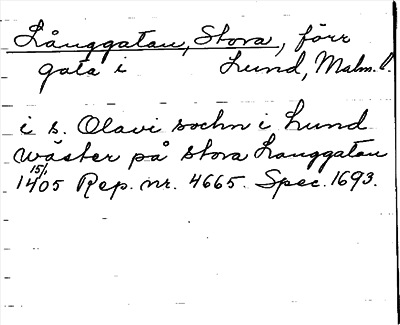 Långgatan, Stora, förr
gata i Lund, Malm.l.
i s. Olavi sochn i Lund
wäster på stora Langgatan
15/1 1405 Rep. nr. 4665. Spec. 1693.